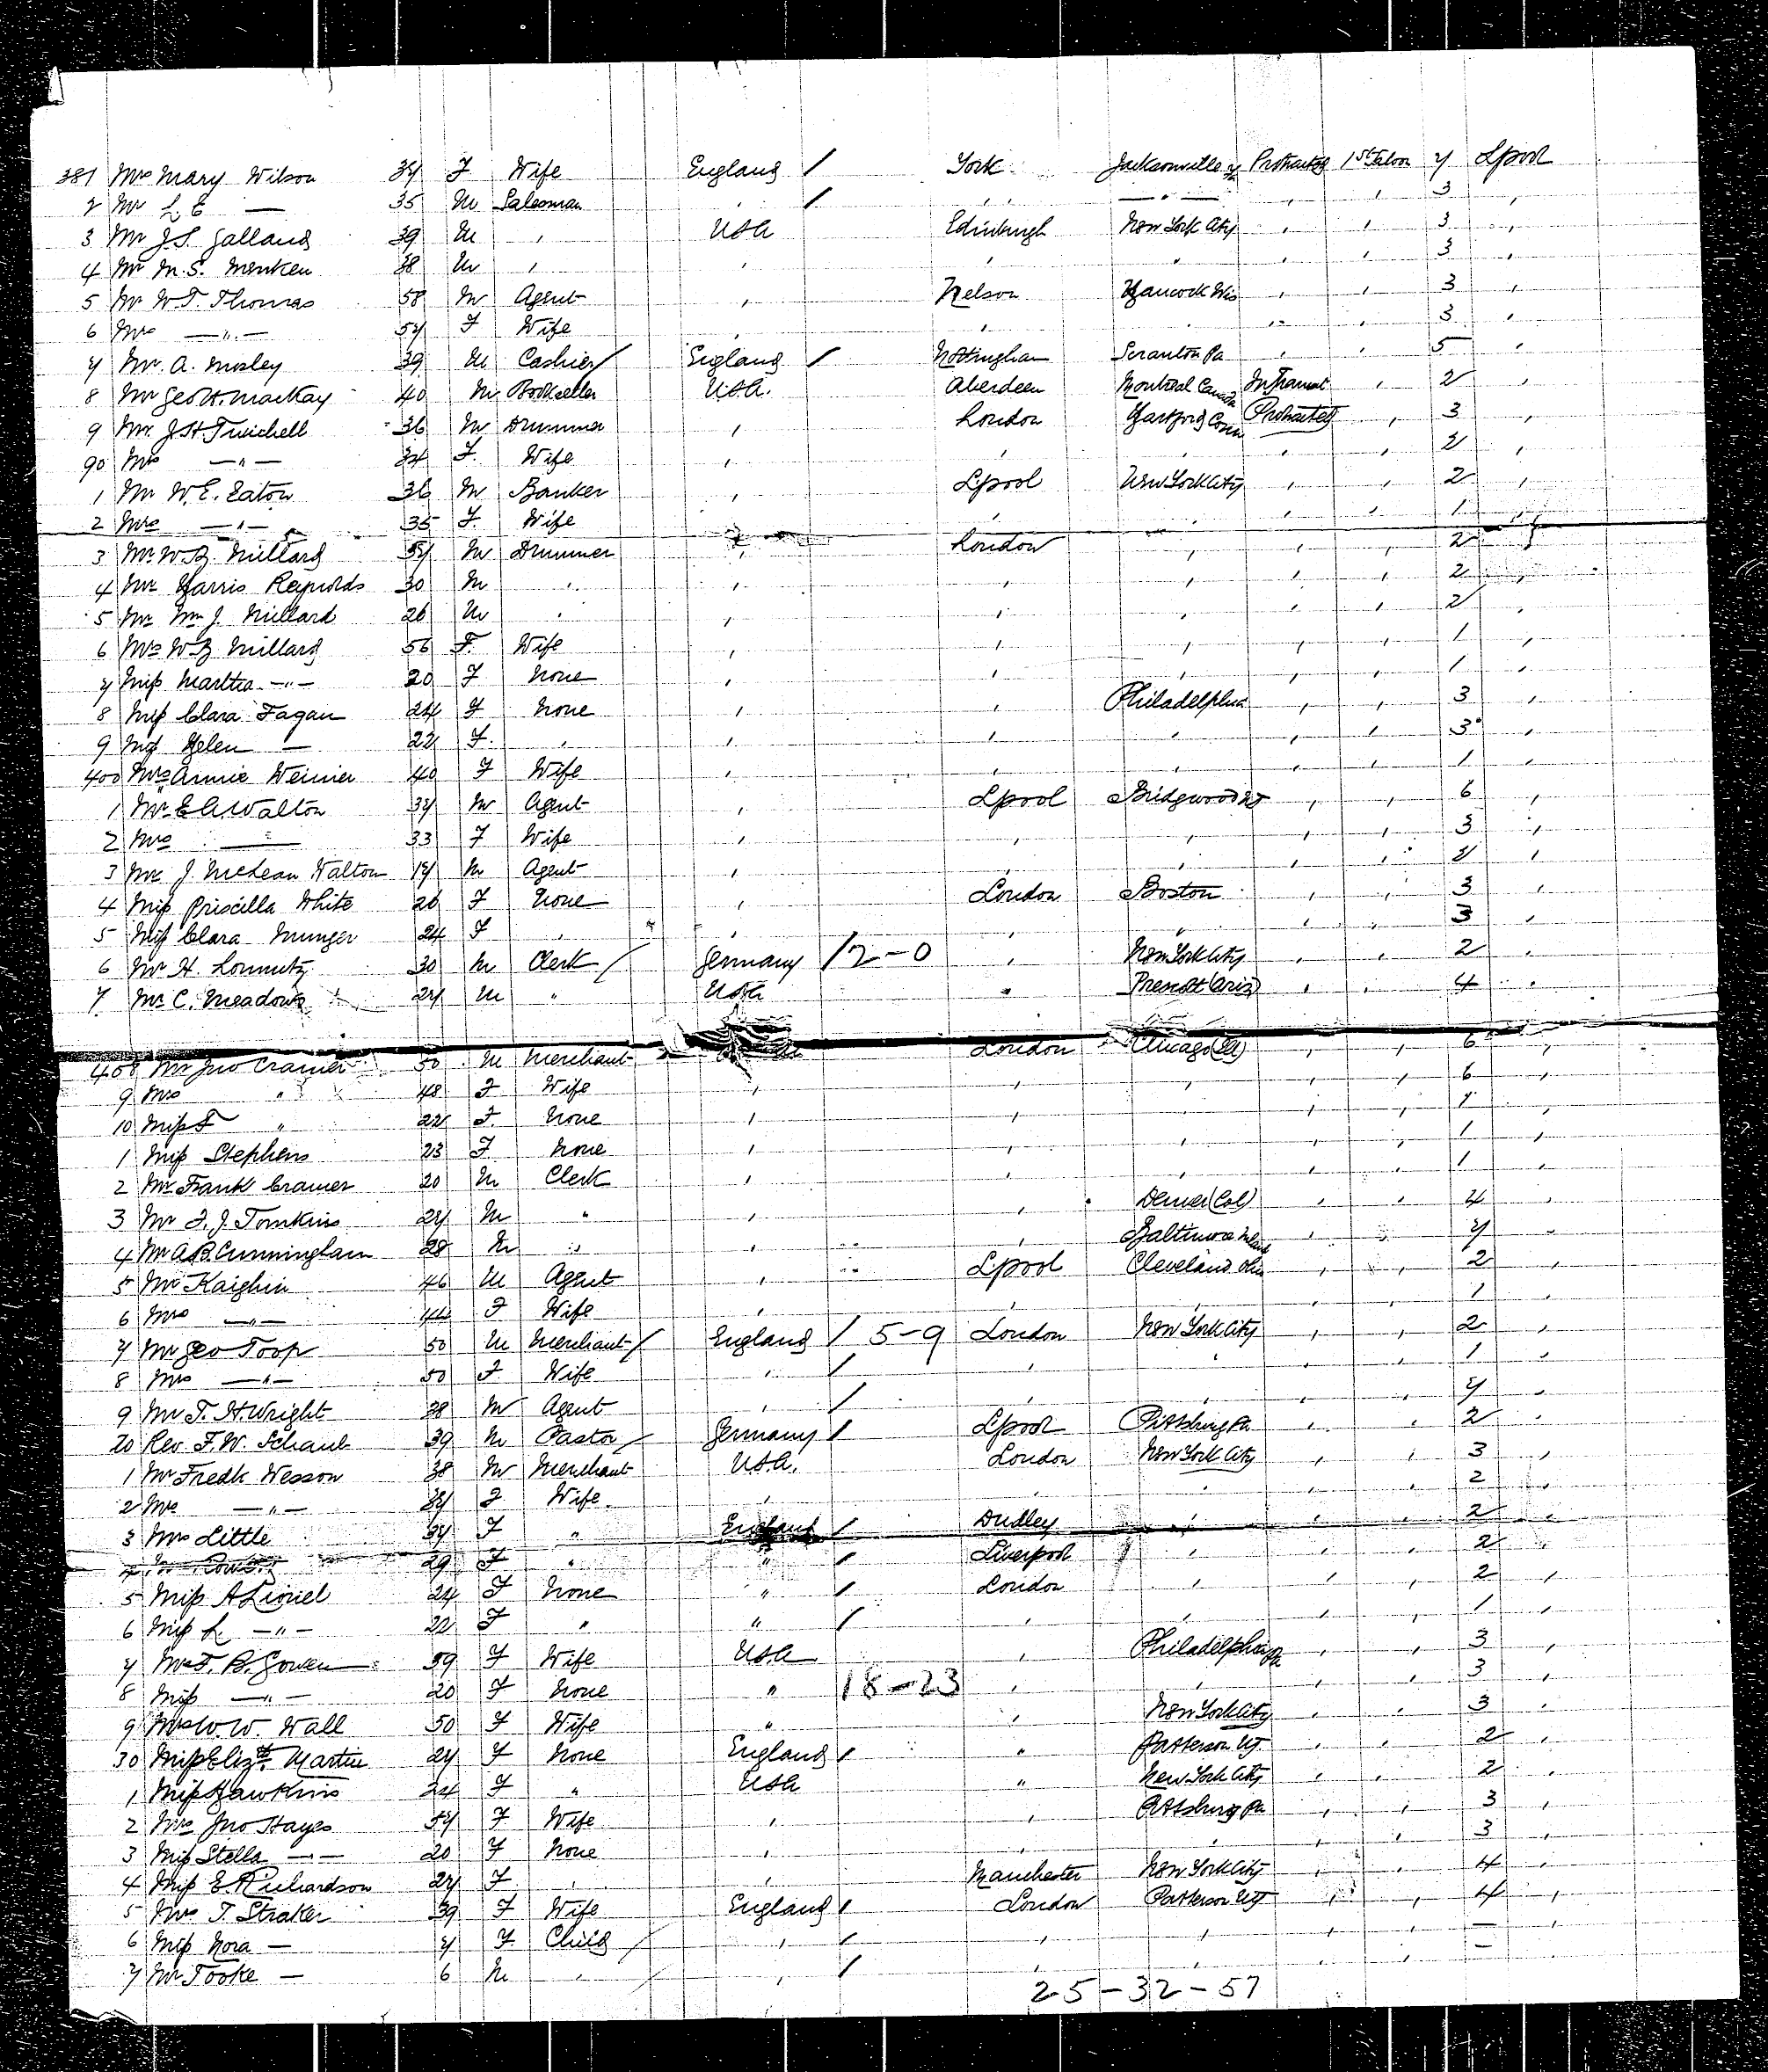 381 Mrs Mary Wilson 37 F Wife England / York Jacksonville Protracted 1st Saloon 7 Lpool
2 Mr L E — 35 M Salesman " / " " " " 3 "
3 Mr J.S. Galland 39 M " USA Edinburgh New York City " " 3 "
4 Mr M.S. Menken 38 M " " " " " " 3 "
5 Mr W.T. Thomas 58 M Agent " Nelson Hancock Wis " " 3 "
6 Mrs — " — 57 F Wife " " " " " 3 "
7 Mr. A. Mosley 39 M Cashier / England / Nottingham Scranton Pa " " 5 "
8 Mr Geo H. Mackay 40 M Bookseller USA. Aberdeen Montreal Canada In Transit " 2 "
9 Mr. J.H. Twichell 36 M Drummer " London Hartford Conn Protracted " 3 "
90 Mrs — " — 34 F. Wife " " " 2 "
1 Mr W.E. Eaton 36 M Banker " Lpool New York City " " 2 "
2 Mrs — " — 35 F Wife " " " " 1 "
3 Mr. W.B. Millard 57 M Drummer " London " " " 2 "
4 Mr Harris Reynolds 30 M " " " " " " 2 "
5 Mr Wm J. Millard 26 M " " " " " " 2 "
6 Mrs W B Millard 56 F. Wife " " " " " 1 "
7 Miss Martha — " — 20 F None " " " " " 1 "
8 Miss Clara Fagan 24 F None " " Philadelphia " " 3 "
9 Miss Helen — 22 F. " " " " " " 3 "
400 Mrs Annie Weimer 40 F Wife " " " " " 1 "
1 Mr E A. Walton 37 M Agent " Lpool Bridgwood NJ " " 6 "
2 Mrs — 33 F Wife " " " " " 3 "
3 Mr J McLean Walton 17 M Agent " " " " " 2 "
4 Miss Priscilla White 26 F None " London Boston " " 3 "
5 Miss Clara Munger 24 F " " " " " " 3 "
6 Mr H. Lommutz 30 M Clerk / Germany / 2-0 " New York City " " 2 "
7 Mr C. Meadows 27 M " USA " Prescott (Ariz) " " 4 "
408 Mr Jno Cramer 50 M Merchant London Chicago (Ill) " " 6 "
9 Mrs " 48 F Wife " " " " " 6 "
10 Miss F " 22 F. None " " " " " 1 "
1 Miss Stephens 23 F None " " " " " 1 "
2 Mr Frank Cramer 20 M Clerk " " " " " 1 "
3 Mr F. J. Tomkins 27 M " " " Denver (Col) " " 4 "
4 Mr A B. Cunningham 28 M " " " Baltimore " " 7 "
5 Mr Kaighin 46 M Agent " Lpool Cleveland Ohio " " 2 "
6 Mrs — " — 44 F Wife " " " " " 1 "
7 Mr Geo Toop 50 M Merchant / England / 5-9 London New York City " " 2 "
8 Mrs — " — 50 F Wife " / " " " " 1 "
9 Mr T. H. Wright 38 M Agent " / " " " " 7 "
20 Rev F. W. Schaub 39 M Pastor / Germany / Lpool Pittsburg Pa " " 2 "
1 Mr Fredk Wesson 38 M Merchant USA. London New York City " " 3 "
2 Mrs — " — 37 F Wife " " " " " 2 "
3 Mrs Little 37 F " England / Dudley " " " 2 "
29 F " " / Liverpool " " " 2 "
5 Miss A Lionel 24 F None " / London " " " 2 "
6 Miss L — " — 22 F " " / " " " " 1 "
7 Mrs F. B. Gowen 59 F Wife USA " Philadelphia Pa " " 3 "
8 Miss — " — 20 F None " 18-23 " " " 3 "
9 Mrs W. W. Wall 50 F Wife " " New York City " " 3 "
30 Miss Elizth Martin 27 F None England / " Patterson NJ. " " 2 "
1 Miss Hawkins 24 F " USA " New York City " " 2 "
2 Mrs Jno Hayes 57 F Wife " " Pittsburg Pa " " 3 "
3 Miss Stella — " — 20 F None " " " " " 3 "
4 Miss E. Richardson 27 F " " Manchester New York City " " 4 "
5 Mrs T. Straker 39 F Wife England / London Patterson NJ " " 4 "
6 Miss Nora — 7 F Child / " / " " " " — "
7 Mr Tooke — 6 M " / " / " " " " — "
25-32-57